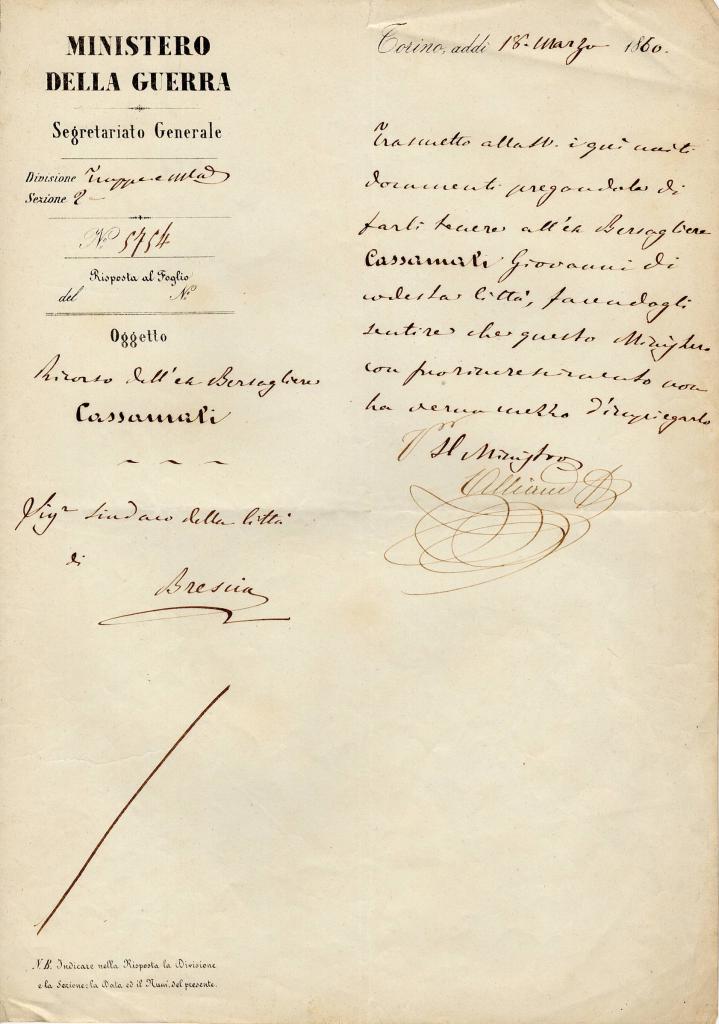 MINISTERO
DELLA GUERRA
Segretariato Generale
Divisione Truppa e
Sezione 2
N.º 5754
Risposta al Foglio
del N.º
Oggetto
Ricorso dell'ex Bersagliere
Cassamali
Sigr Sindaco della Città
di
Brescia
N.B. Indicare nella Risposta la Divisione
e la Sezione; la Data ed il Num. del presente.
Torino, addì 18 Marzo 1860.
Trasmetto alla i qui uniti
documenti pregandola di
farli tenere all'ex Bersagliere
Cassamali Giovanni di
codesta Città, facendogli
sentire che questo Ministero
con suo rincrescimento non
ha verun mezzo d'impiegarlo
Il Ministro